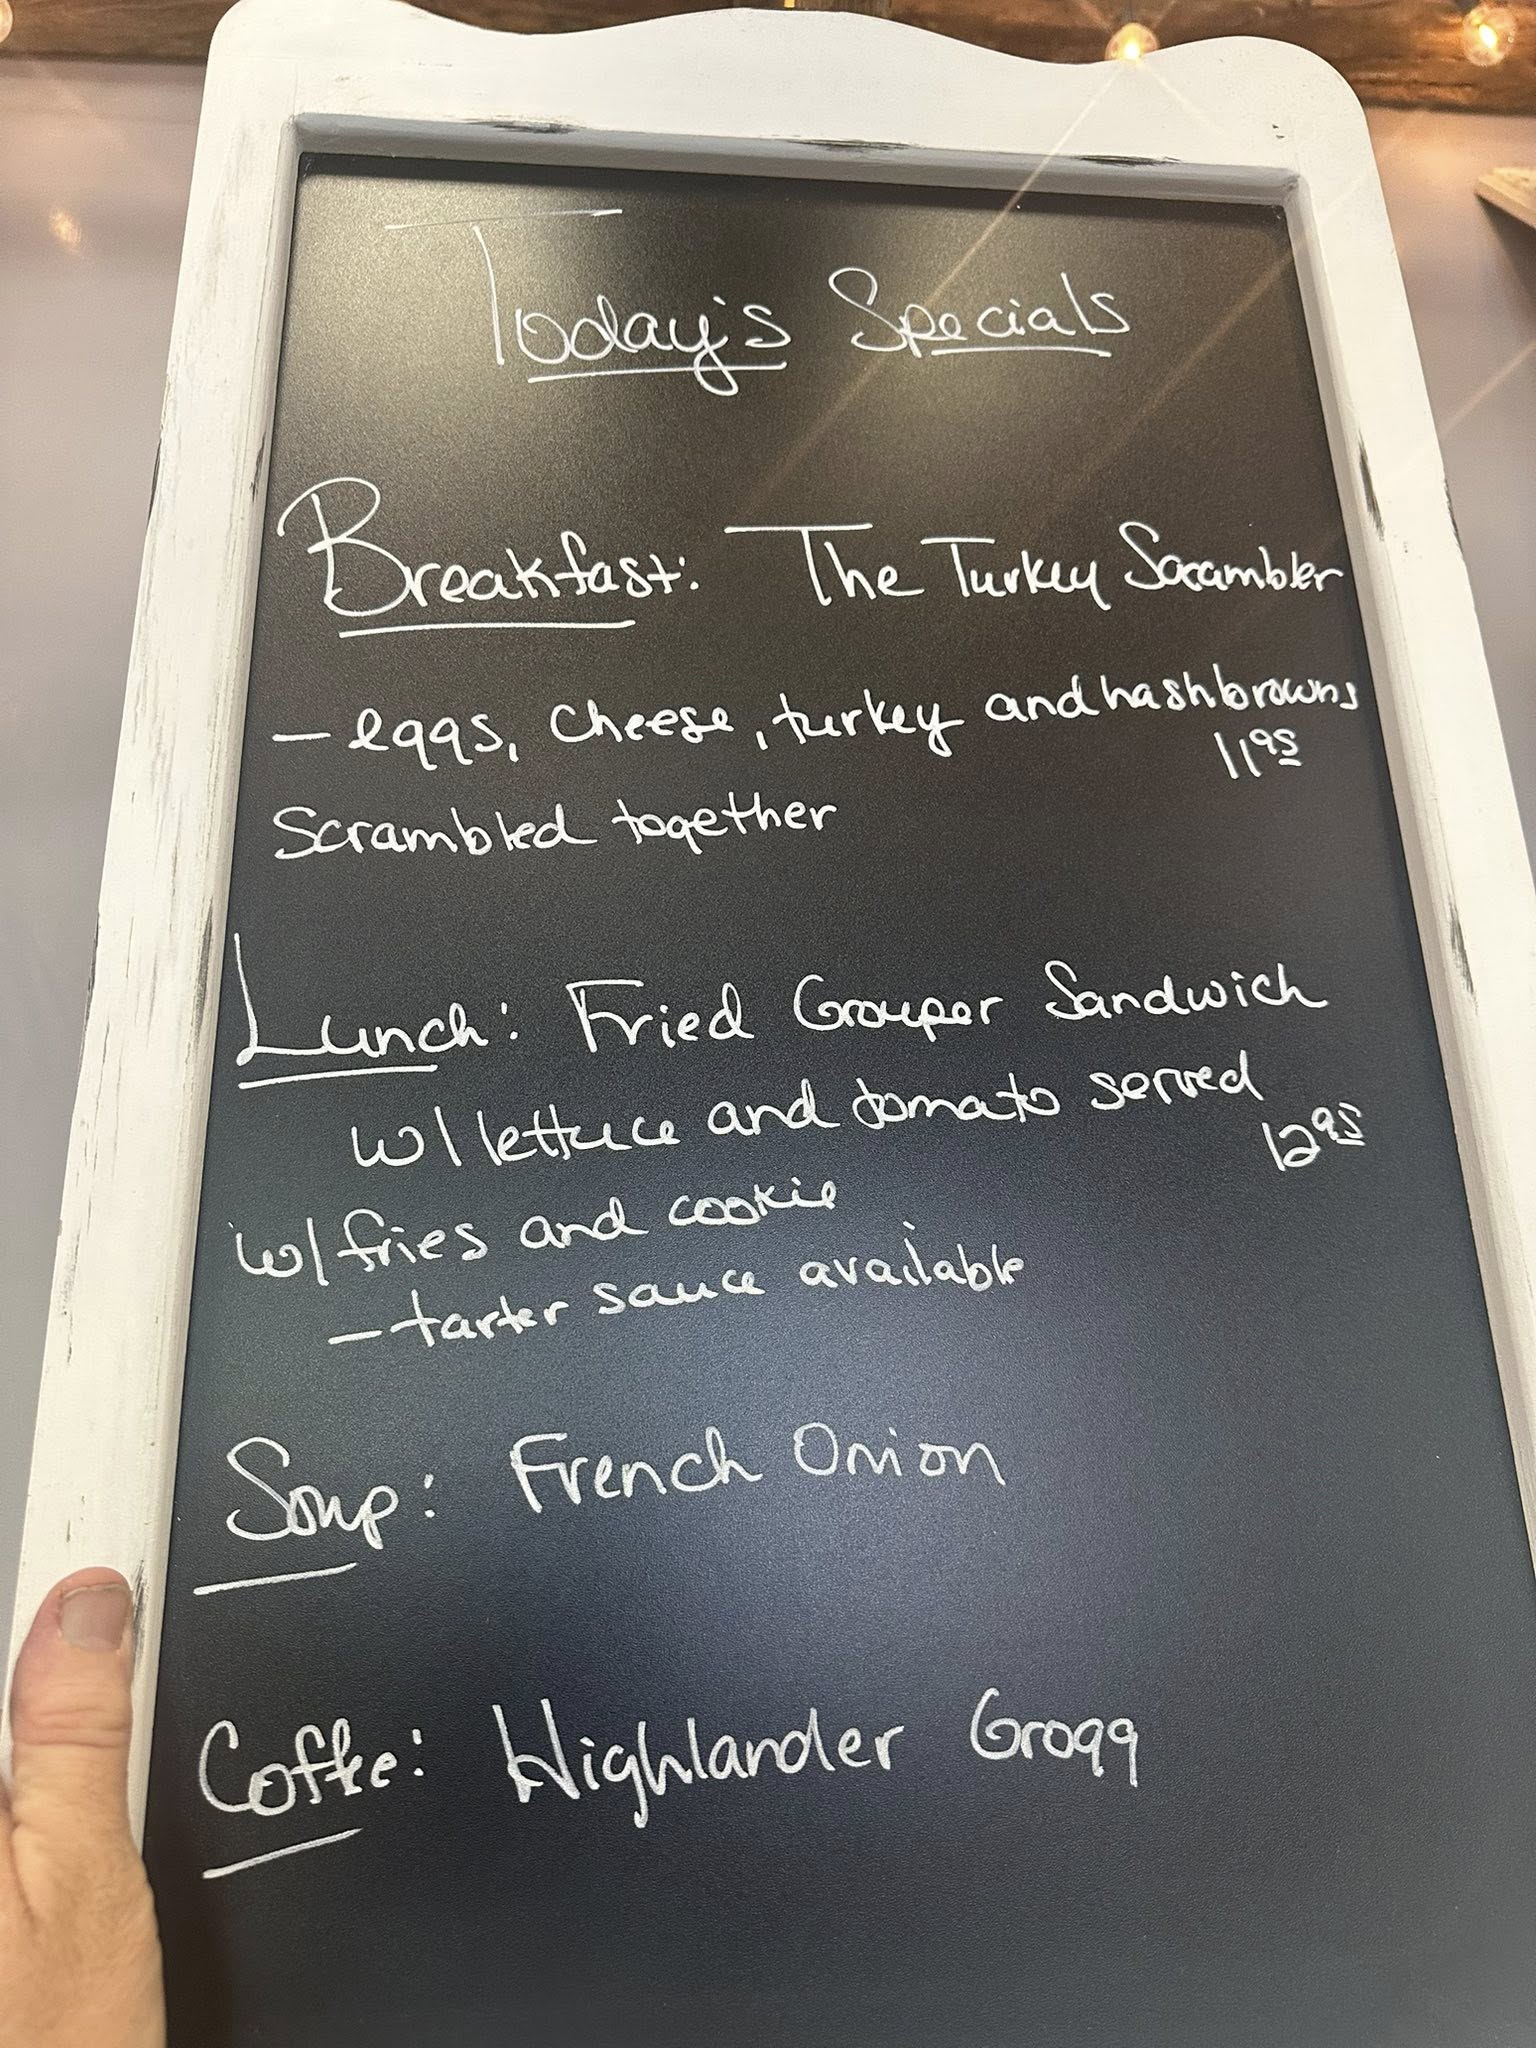 Today's Specials
Breakfast: The Turkey Scrambler
- eggs, cheese, turkey and hashbrowns
11.95
Scrambled together
Lunch: Fried Grouper Sandwich
w/ lettuce and tomato served
12.95
w/ fries and cookie
- tarter sauce available
Soup: French Onion
Coffee: Highlander Grogg